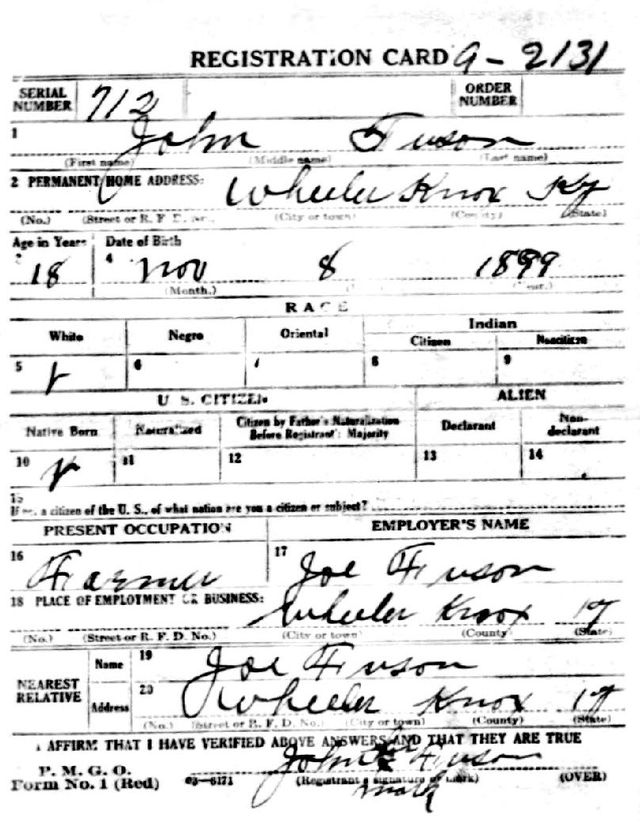 REGISTRATION CARD 9-2131
SERIAL NUMBER 712 ORDER NUMBER
1 John Fuson
(First name) (Middle name) (Last name)
2 PERMANENT HOME ADDRESS: Wheeler Knox Ky
(No.) (Street or R. F. D. No.) (City or town) (County) (State)
Age in Years Date of Birth
18 4 Nov 8 1899
(Month.)
RACE
White Negro Oriental Indian
Citizen Noncitizen
5 6 7 8 9
U. S. CITIZEN ALIEN
Native Born Naturalized Citizen by Father's Naturalization Before Registrant's Majority Declarant Non-declarant
10 11 12 13 14
15
If not a citizen of the U. S., of what nation are you a citizen or subject?
PRESENT OCCUPATION EMPLOYER'S NAME
16 Farmer 17 Joe Fuson
18 PLACE OF EMPLOYMENT OR BUSINESS: Wheeler Knox Ky
(No.) (Street or R. F. D. No.) (City or town) (County) (State)
NEAREST RELATIVE Name 19 Joe Fuson
Address 20 Wheeler Knox Ky
(No.) (Street or R. F. D. No.) (City or town) (County) (State)
I AFFIRM THAT I HAVE VERIFIED ABOVE ANSWERS AND THAT THEY ARE TRUE
P. M. G. O.
Form No. 1 (Red) 03-6171 John Fuson
(Registrant's signature or mark) (OVER)
mark